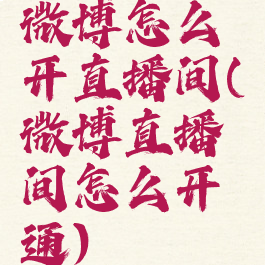 微博怎么
开直播间(
微博直播
间怎么开
通)